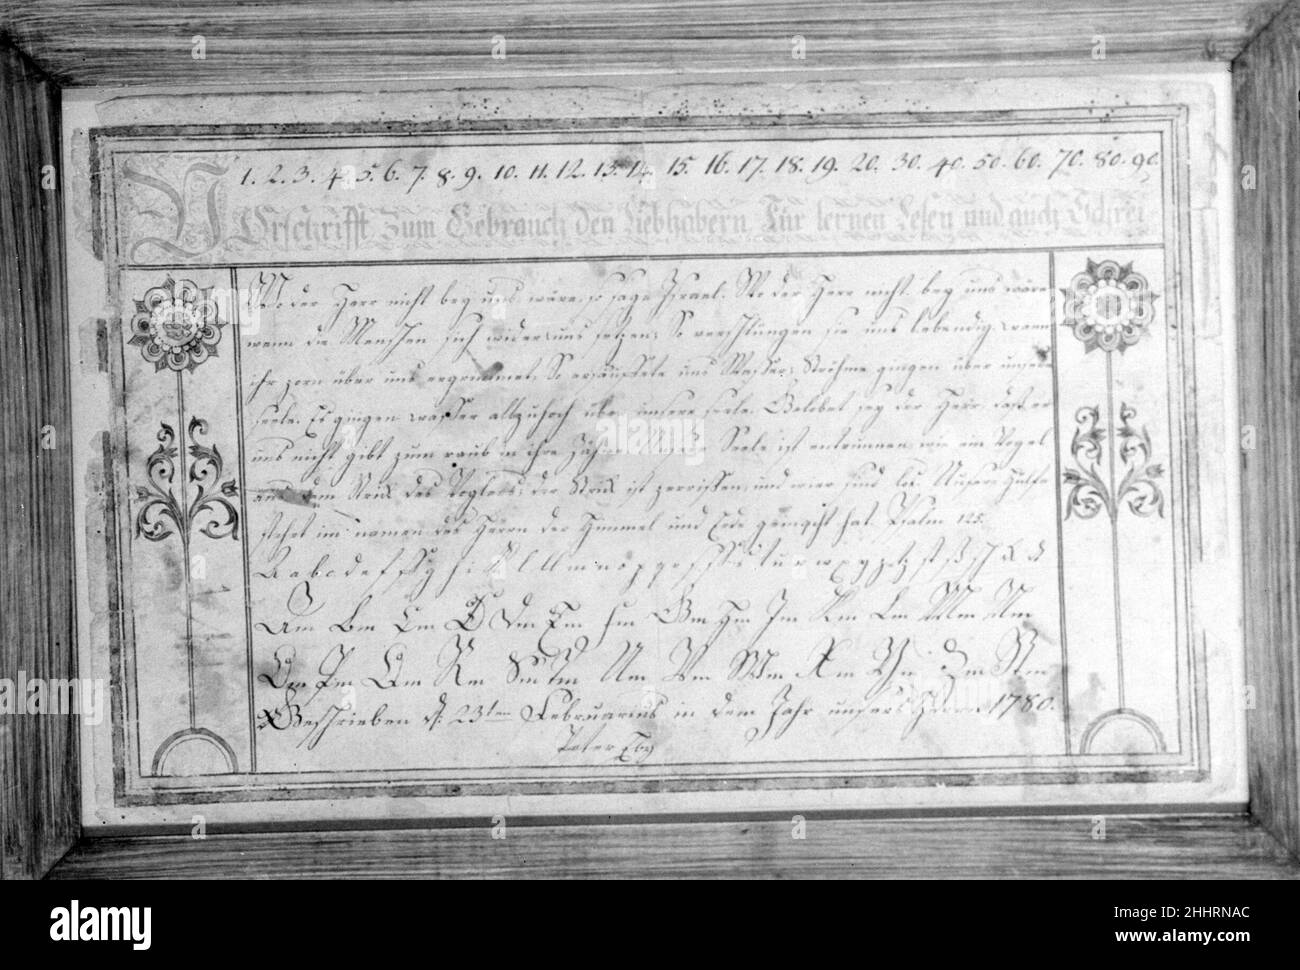 1. 2. 3. 4. 5. 6. 7. 8. 9. 10. 11. 12. 13. 14. 15. 16. 17. 18. 19. 20. 30. 40. 50. 60. 70. 80. 90.
Vorschrifft Zum Gebrauch den Liebhabern Für lernen Lesen und auch Schrei
Wo der Herr nicht bey uns wäre, so sage Israel. Wo der Herr nicht bey uns wäre
wenn die Menschen sich wider uns setzen; So verschlungen sie uns lebendig, wenn
ihr zorn über uns ergrimmet, So ersäuffete uns Wasser; Ströhme gingen über unsere
seele. Es gingen wasser allzuhoch über unsere seele. Gelobet sey der Herr, daß er
uns nicht gibt zum raub in ihre Zähne. Unsere Seele ist entrunnen wie ein Vogel
aus dem Strick des Voglers; der Strick ist zerrissen, und wier sind los. Unsere Hülfe
stehet im namen des Herrn der Himmel und Erde gemacht hat. Psalm 125.
Geschrieben d. 23ten Februarius in dem Jahr unsers Herrn 1780.
Peter Eby
alamy
alamy
Image ID: 2HHRNAC
www.alamy.com